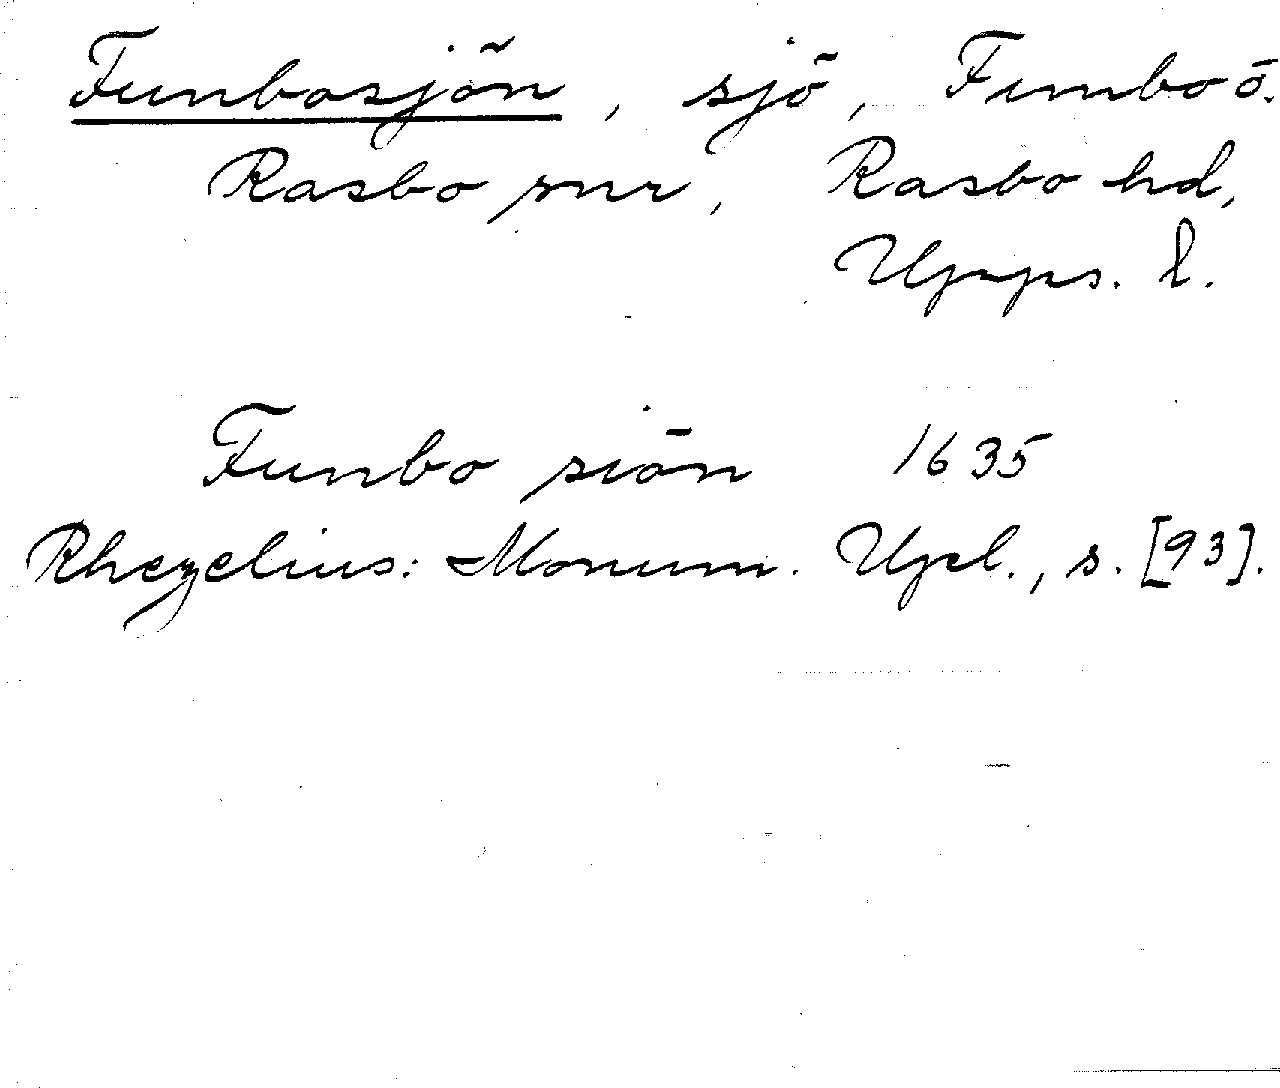 Funbosjön, sjö, Funbo o.
Rasbo snr, Rasbo hd,
Upps. l.
Funbo siön 1635
Rhezelius: Monum. Upl., s. [93].